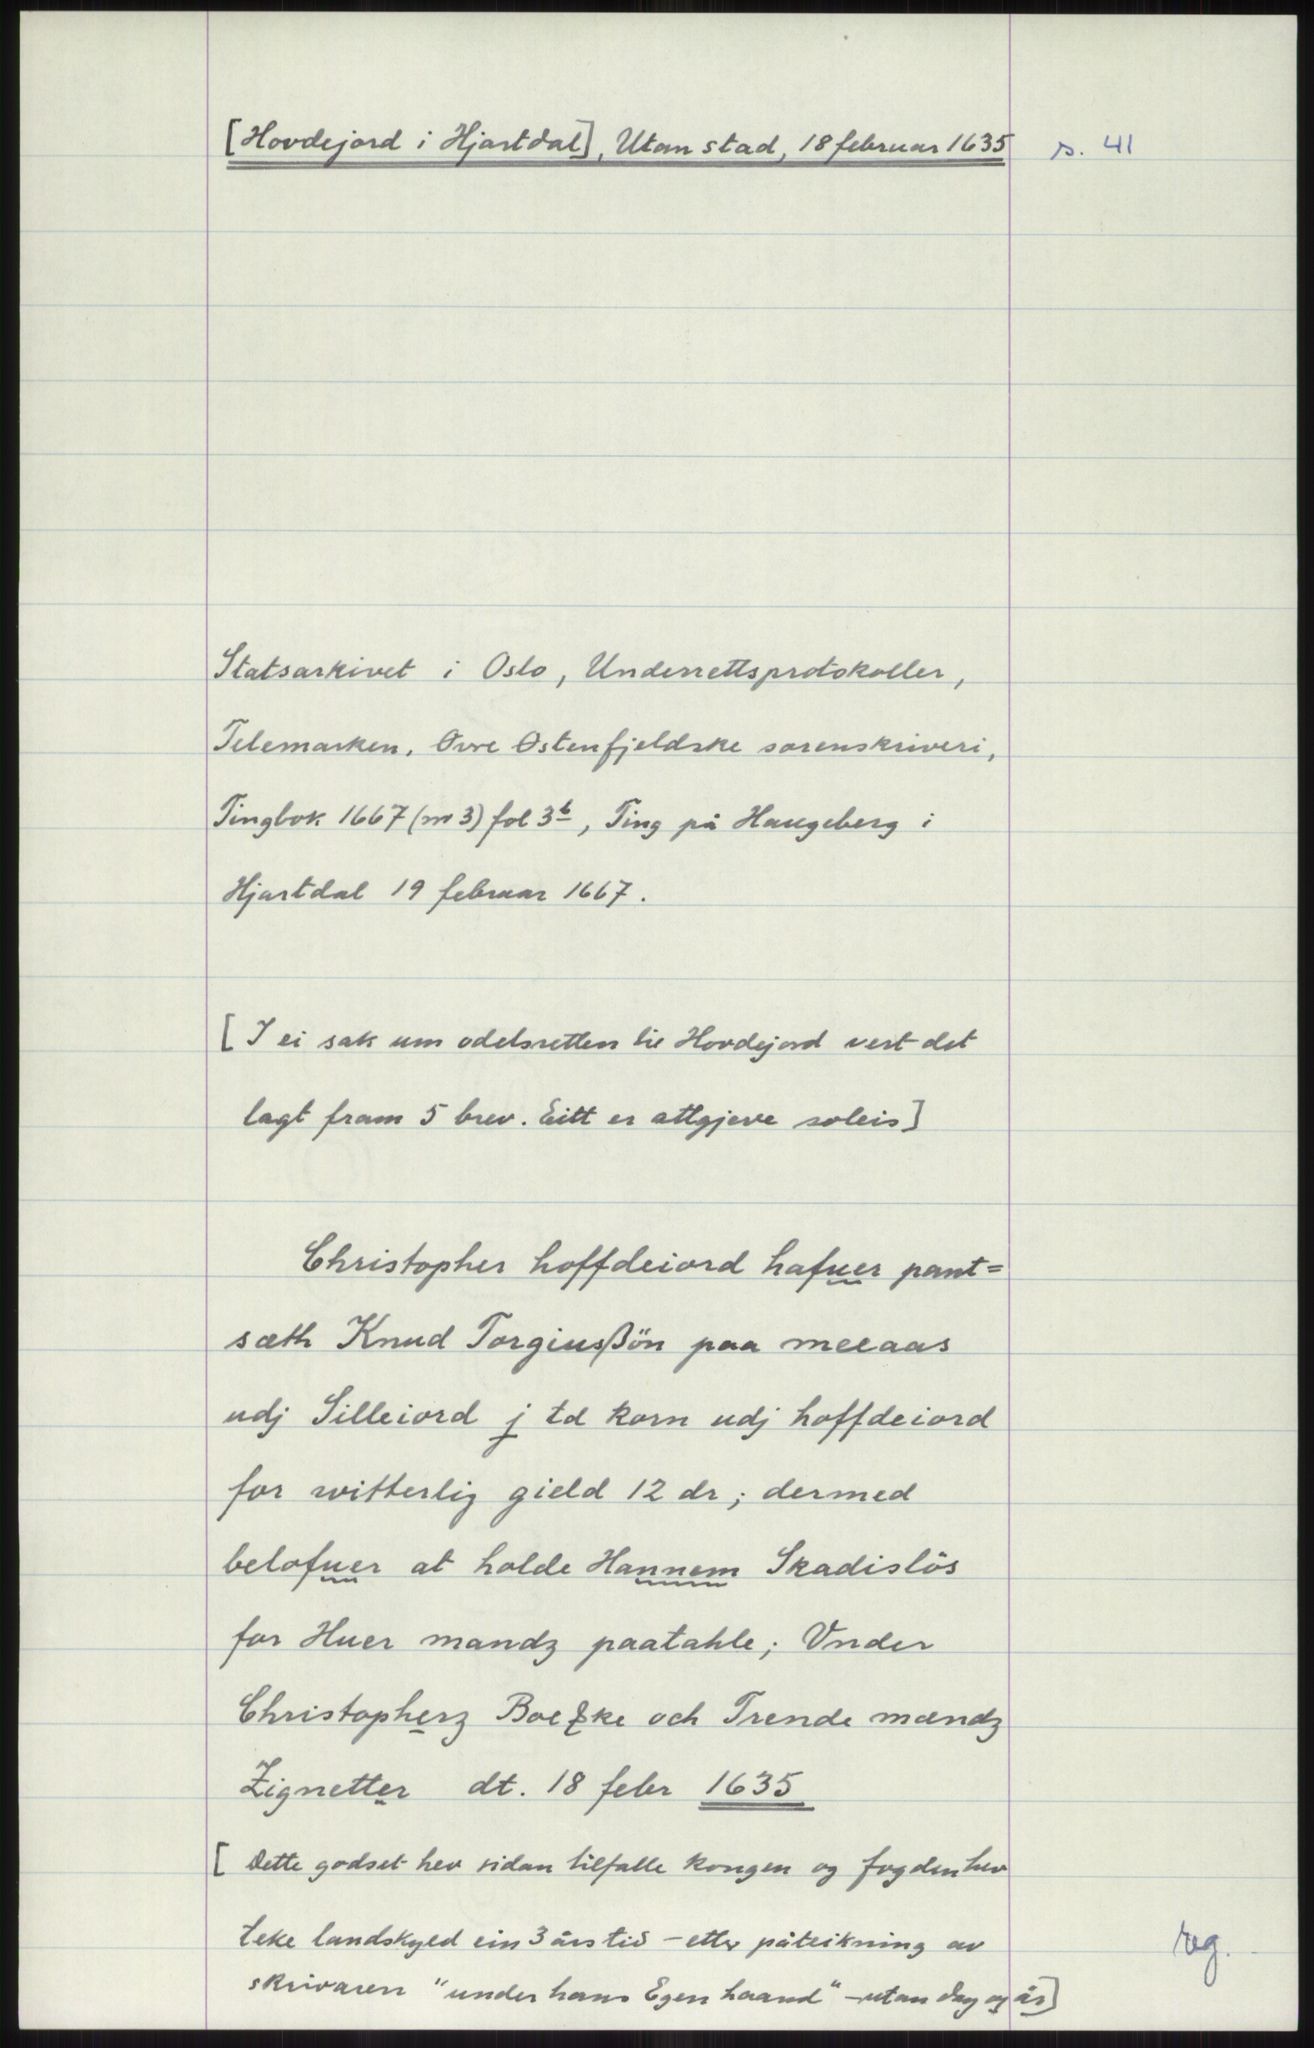 [Hovdejord i Hjartdal], Utan stad, 18 februar 1635 s. 41
Statsarkivet i Oslo, Underrettsprotokoller,
Telemarken. Øvre Østenfjeldske sorenskriveri,
Tingbok 1667 (nr 3) fol 3b, Ting på Haugeberg i
Hjartdal 19 februar 1667.
[I ei sak um odelsretten til Hovdejord vert det
lagt fram 5 brev. Eitt er attgjeve soleis]
Christopher hoffdeiord hafuer pant=
sæth Knud Torgiusßön paa meeaas
udj Silleiord j td korn udj hoffdeiord
for witterlig gield 12 dr; dermed
belofuer at holde Hannem Skadislös
for Huer mandz paatahle; Vnder
Christopherz Boeßke och Trende mændz
Zignetter dt. 18 febr 1635
[Dette godset hev sidan tilfalle kongen og fogden hev
teke landskyld ein 3 års tid - etter påteikning av
skrivaren "under hans Egen haand" - utan dag og år]
reg.